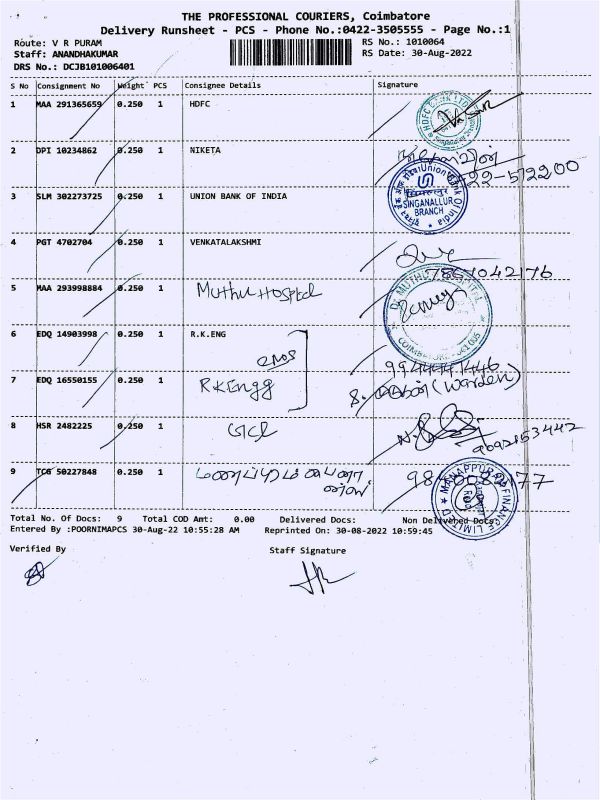 THE PROFESSIONAL COURIERS, Coimbatore
Delivery Runsheet - PCS - Phone No.:0422-3505555 - Page No.:1
Route: V R PURAM
RS No.: 1010064
Staff: ANANDHAKUMAR
RS Date: 30-Aug-2022
DRS No.: DCJB101006401
S No Consignment No Weight PCS Consignee Details Signature
1 MAA 291365659 0.250 1 HDFC
2 DPI 10234862 0.250 1 NIKETA
22-572200
3 SLM 302273725 0.250 1 UNION BANK OF INDIA
Union Bank Of India
SINGANALLUR
BRANCH
4 PGT 4702704 0.250 1 VENKATALAKSHMI
5 MAA 293998884 0.250 1 Muthu Hospital
6 EDQ 14903998 0.250 1 R.K.ENG
7 EDQ 16550155 0.250 1 RK Engg
(Warden)
8 HSR 2482225 0.250 1
9 TCG 50227848 0.250 1
MANAPPURAM FINANCE LIMITED
Total No. Of Docs: 9 Total COD Amt: 0.00 Delivered Docs: Non Delivered Docs:
Entered By :POORNIMAPCS 30-Aug-22 10:55:28 AM Reprinted On : 30-08-2022 10:59:45
Verified By Staff Signature